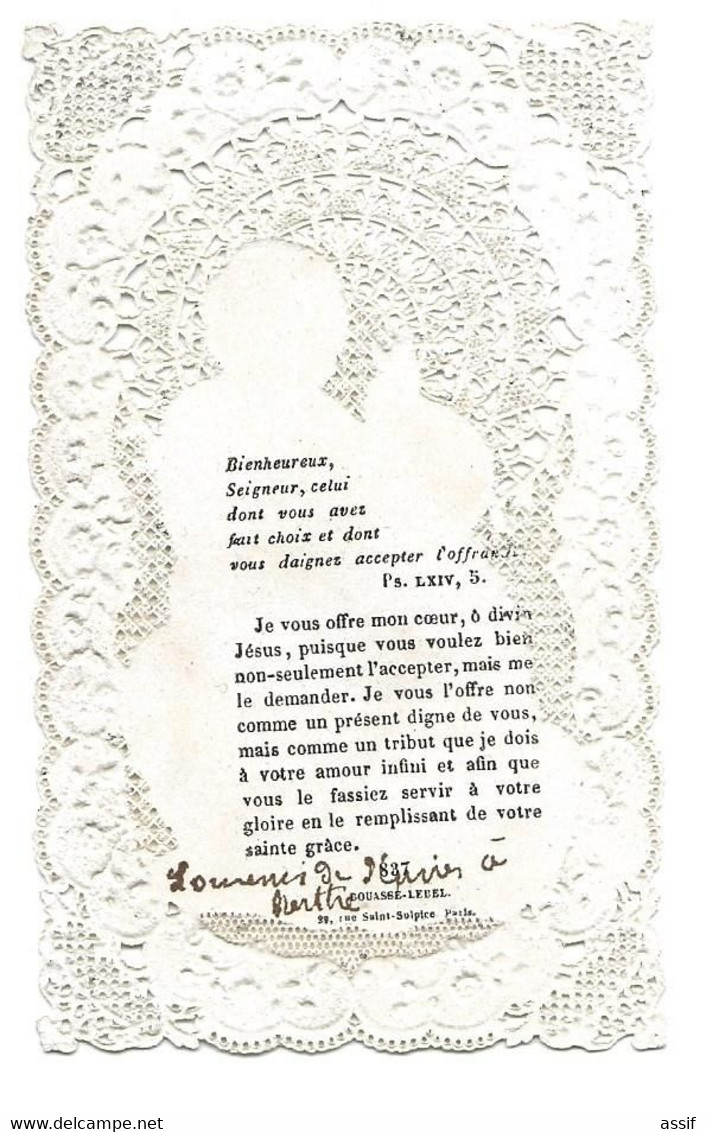 Bienheureux,
Seigneur, celui
dont vous avez
fait choix et dont
vous daignez accepter l'offrande.
Ps. LXIV, 5.
Je vous offre mon cœur, ô divin
Jésus, puisque vous voulez bien
non-seulement l'accepter, mais me
le demander. Je vous l'offre non
comme un présent digne de vous,
mais comme un tribut que je dois
à votre amour infini et afin que
vous le fassiez servir à votre
gloire en le remplissant de votre
sainte grâce.
837
Souvenir de à
Berthe
BOUASSE-LEBEL.
29, rue Saint-Sulpice Paris.
www.delcampe.net
assif